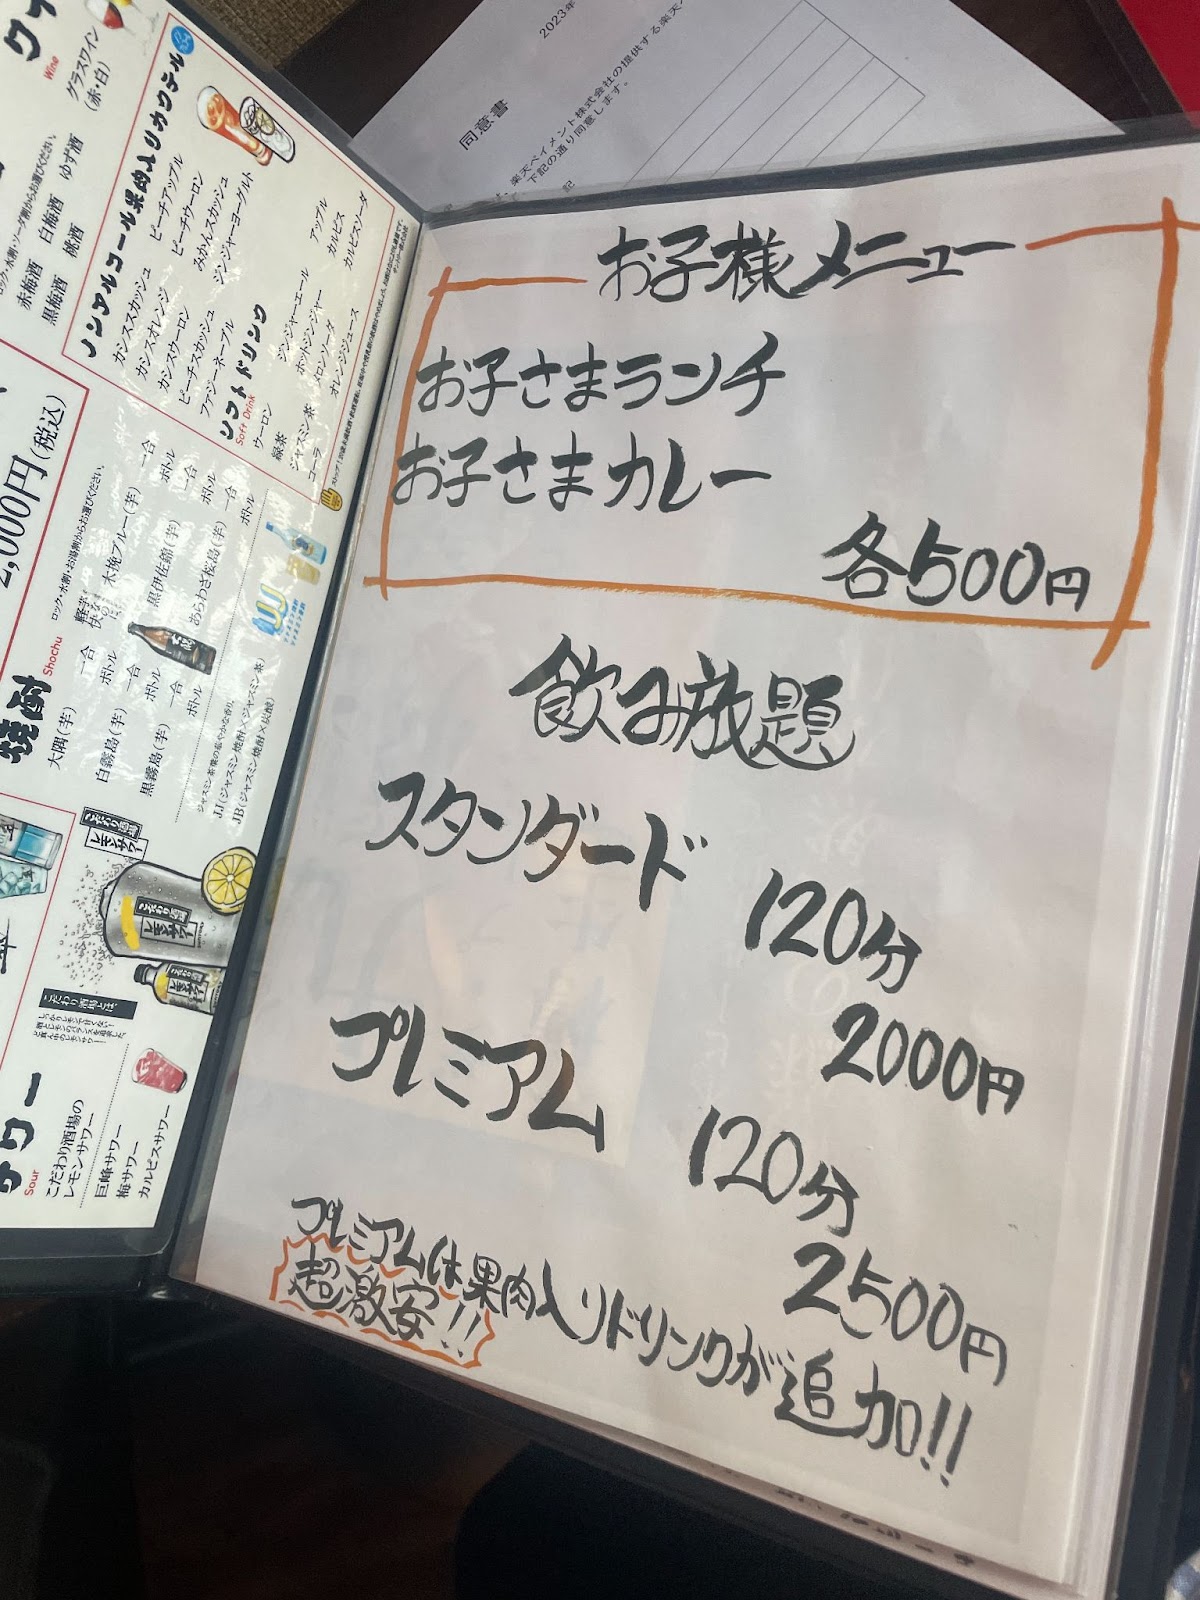 同意書
2023年
下記の通り同意します。
記
お子様メニュー
お子さまランチ
お子さまカレー
各500円
飲み放題
スタンダード
120分
2000円
プレミアム
120分
2500円
プレミアムは果肉入りドリンクが追加!!
超激安!!
Wine
グラスワイン
(赤・白)
ロック・水割・ソーダ割からお選びください。
赤梅酒 白梅酒 ゆず酒
黒梅酒 桃酒
ノンアルコール果肉入りカクテル
カシススカッシュ
カシスオレンジ
カシスウーロン
ピーチスカッシュ
ファジーネーブル
ピーチアップル
ピーチウーロン
みかんスカッシュ
ジンジャーヨーグルト
ソフトドリンク
Soft Drink
ウーロン
緑茶
ジャスミン茶
コーラ
ジンジャーエール
ホットジンジャー
メロンソーダ
オレンジジュース
アップル
カルピス
カルピスソーダ
2,000円(税込)
焼酎
Shochu
ロック・水割・お湯割からお選びください。
大隅(芋)
一合
ボトル
白霧島(芋)
一合
ボトル
黒霧島(芋)
一合
ボトル
木挽ブルー(芋)
一合
ボトル
黒伊佐錦(芋)
一合
ボトル
おらわざ桜島(芋)
一合
ボトル
ジャスミン茶葉の華やかな香り。
JJ(ジャスミン焼酎×ジャスミン茶)
JB(ジャスミン焼酎×炭酸)
サワー
Sour
こだわり酒場の
レモンサワー
巨峰サワー
梅サワー
カルピスサワー
こだわり酒場
レモンサワー
こだわり酒場とは、